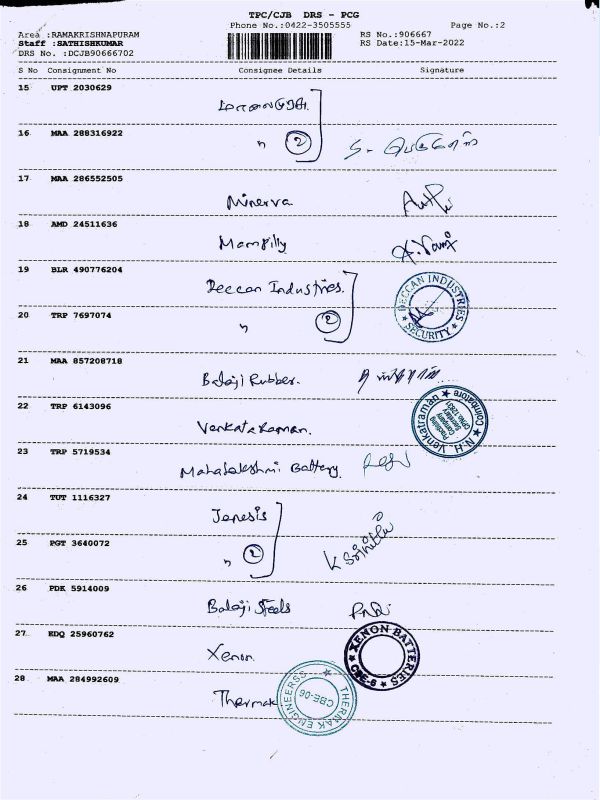 TPC/CJB DRS - PCG
Phone No.:0422-3505555 Page No.:2
Area :RAMAKRISHNAPURAM RS No.:906667
Staff :SATHISHKUMAR RS Date:15-Mar-2022
DRS No. :DCJB90666702
S No Consignment No Consignee Details Signature
15 UPT 2030629
16 MAA 288316922
" 2
17 MAA 286552505
Minerva
18 AMD 24511636
Mampilly
19 BLR 490776204
Deccan Industries.
DECCAN INDUSTRIES
SECURITY
20 TRP 7697074
" 2
21 MAA 857208718
Balaji Rubber.
22 TRP 6143096
Venkataraman.
N.H. Venkatraman
Coimbatore
Practising
Company
Secretary
23 TRP 5719534
Mahalakshmi Battery
24 TUT 1116327
Jenesis
25 PGT 3640072
" 2
K Srinithi
26 PDK 5914009
Balaji Steels
27 EDQ 25960762
Xenon
XENON BATTERIES
CBE-6
28 MAA 284992609
Thermak
THERMAK ENGINEERSS
CBE-06